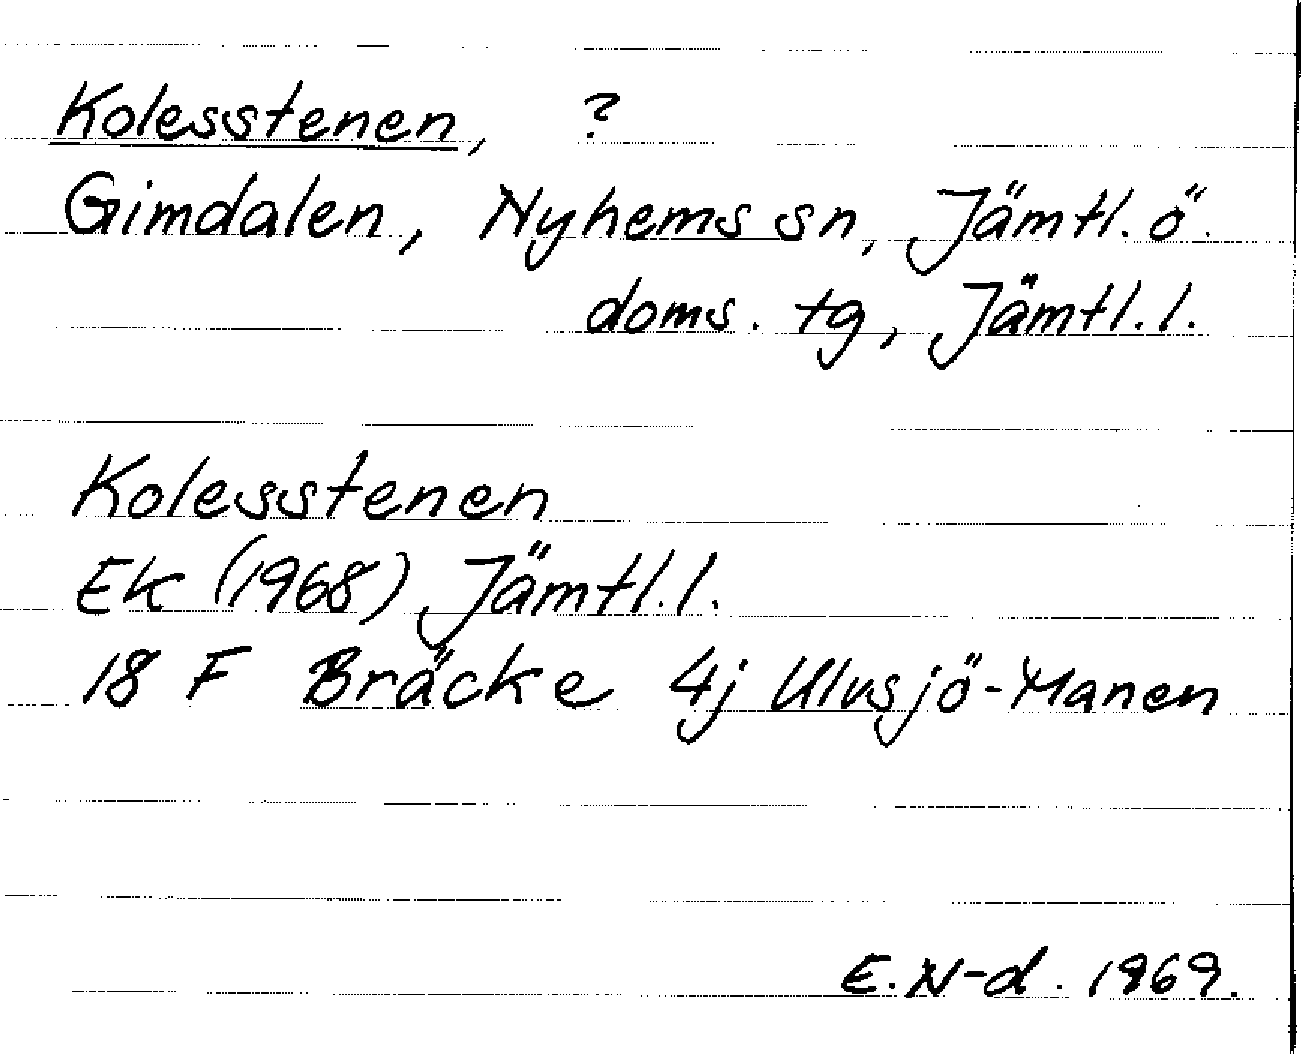 Kolesstenen, ?
Gimdalen, Nyhems sn, Jämtl. ö.
doms. tg, Jämtl. l.
Kolesstenen
EK (1968) Jämtl. l.
18 F Bräcke 4j Ulvsjö-Manen
E. N-d. 1969.